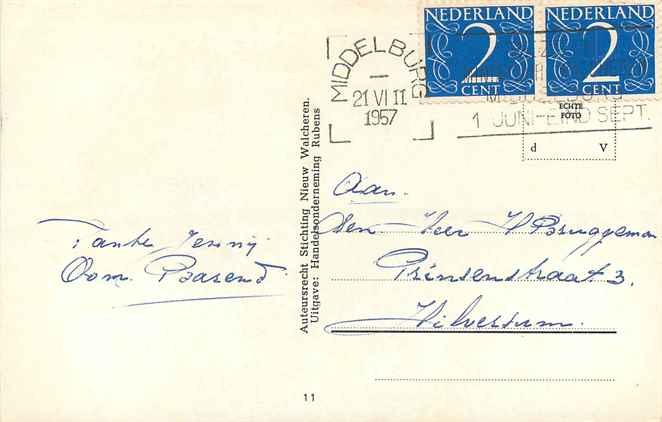 NEDERLAND
2
CENT
NEDERLAND
2
CENT
MIDDELBURG
21 VI 11
1957
1 JUNI-EIND SEPT.
ECHTE
FOTO
d V
Tante Jenny
Oom Baarend
Auteursrecht Stichting Nieuw Walcheren.
Uitgave: Handelsonderneming Rubens
Aan.
Den Heer H Bruggeman
Prinsenstraat 3.
Hilversum.
11